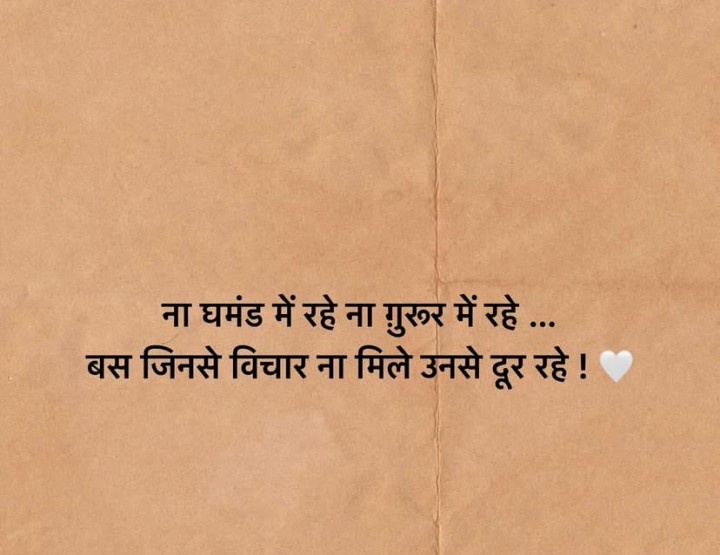 ना घमंड में रहे ना ग़ुरूर में रहे ...
बस जिनसे विचार ना मिले उनसे दूर रहे ! 🤍